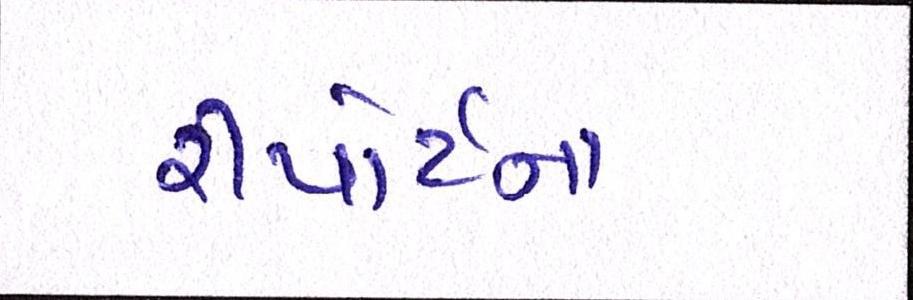 રીપોર્ટના